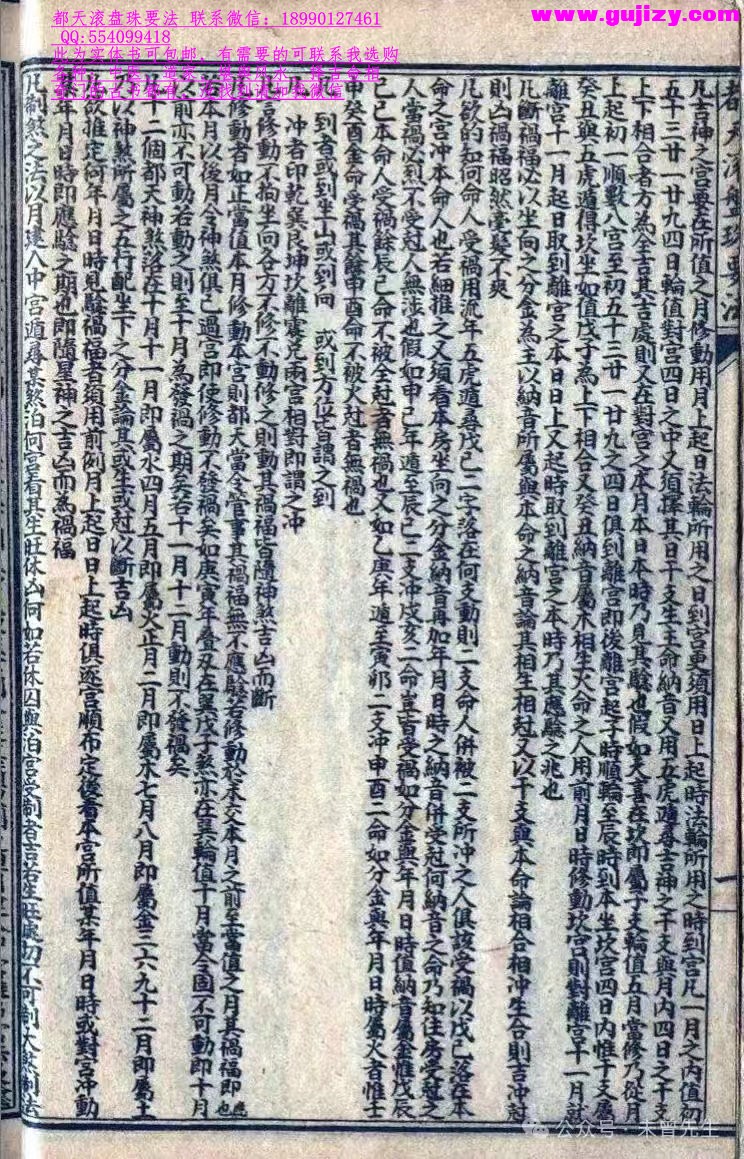 都天滚盘珠要法 联系微信：18990127461
QQ:554099418
此为实体书可包邮，有需要的可联系我选购
www.gujizy.com
都天滚盤珠要法
凡吉神之宮要在所值之月修動用月上起日法輪所用之日到宮更須用日上起時法輪所用之時到宮凡一月之內值初
五十三廿一廿九四日輪值對宮四日之中又須擇其日干支生主命納音又用五虎遁尋吉神之干支與月內四日之干支
上下相合者方為全吉其吉處則又在對宮之本月本日本時乃見其驗也假如天喜在坎即屬子支輪值五月當修乃從月
上起初一順數八宮至初五十三廿一廿九之四日俱到離宮即後離宮起子時順輪至辰時到本坐坎宮四日內惟十支屬
癸丑與五虎遁得坎坐如值戊子為上下相合又癸丑納音屬木相生火命之人用前月日時修動坎宮則對離宮十一月就
離宮十一月起日取到離宮之本日日上又起時取到離宮之本時乃其應驗之兆也
凡斷禍福必以坐向之分金為主以納音所屬與本命之納音論其相生相尅又以干支與本命論相合相冲生合則吉冲尅
則凶禍福昭然毫髮不爽
凡欲的知何命人受禍用流年五虎遁尋戊己二字落在何支動則二支命人併被二支所冲之人俱該受禍以戊己落在本
命之宮冲本命人也若細推之又須看本房坐向之分金納音再加年月日時之納音併受尅何納音之命乃如住房受尅之
人當禍必烈不受尅人無涉也假如申己年遁至辰巳二支冲戌亥二命豈皆受禍如分金與年月日時值納音屬金惟戊辰
己巳本命人受禍餘辰巳命不被全尅者無禍也又如乙庚年遁至寅卯二支冲申酉二命如分金與年月日時屬火者惟壬
申癸酉金命受禍其餘申酉命不被火尅者無禍也
到者或到坐山或到向 或到方位皆謂之到
冲者印乾巽艮坤坎離震兌兩宮相對即謂之冲
凡宮修動不拘坐向各方不修不動修之則動其禍福皆隨神煞吉凶而斷
凡修動者如正當值本月修動本宮則都天當令管事其禍福無不應驗若修動於未交本月之前至當值之月其禍福即應
若本月以後月令神煞俱已過宮即使修動不發禍矣如庚寅年叠刃在巽戊子煞亦在巽輪值十月當令固不可動即十月也
以前亦不可動若動之則至十月為發禍之期矣若十一月十二月動則不發禍矣
凡十二個都天神煞落在十月十一月即屬水四月五月即屬火正月二月即屬木七月八月即屬金三六九十二月即屬土
乃以神煞所屬之五行配坐下之分金論其或生或尅以斷吉凶
凡欲推定何年月日時見驗禍福者須用前例月上起日日上起時俱逐宮順布定後看本宮所值某年月日時或對宮冲動
某年月日時即應驗之期也即隨星神之吉凶而為禍福
凡制煞之法以月建入中宮遁尋某煞泊何宮看其生旺休囚何如若休囚與泊宮受制者吉若生旺處切不可制大煞制法
公众号·未曾先生